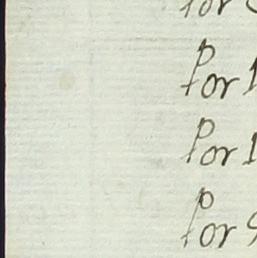 Por
Por 1
Por 1
Por 9